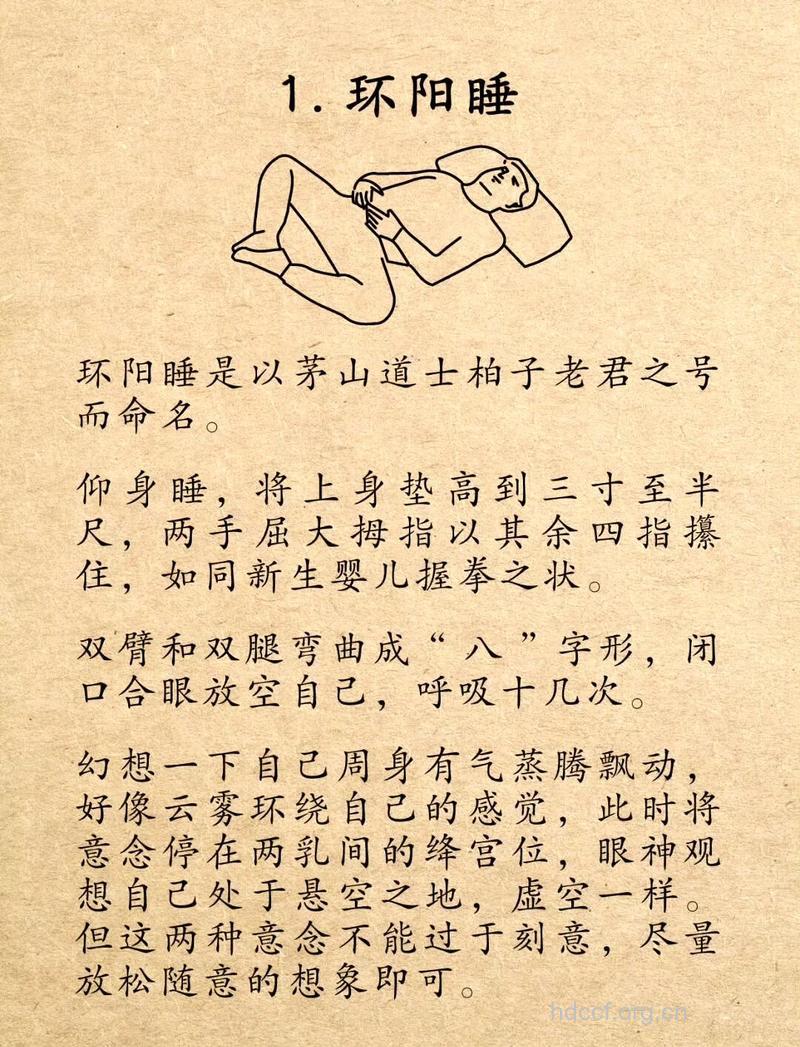 1. 环阳睡
环阳睡是以茅山道士柏子老君之号
而命名。
仰身睡，将上身垫高到三寸至半
尺，两手屈大拇指以其余四指攥
住，如同新生婴儿握拳之状。
双臂和双腿弯曲成“八”字形，闭
口合眼放空自己，呼吸十几次。
幻想一下自己周身有气蒸腾飘动，
好像云雾环绕自己的感觉，此时将
意念停在两乳间的绛宫位，眼神观
想自己处于悬空之地，虚空一样。
但这两种意念不能过于刻意，尽量
放松随意的想象即可。
hdccf.org.cn